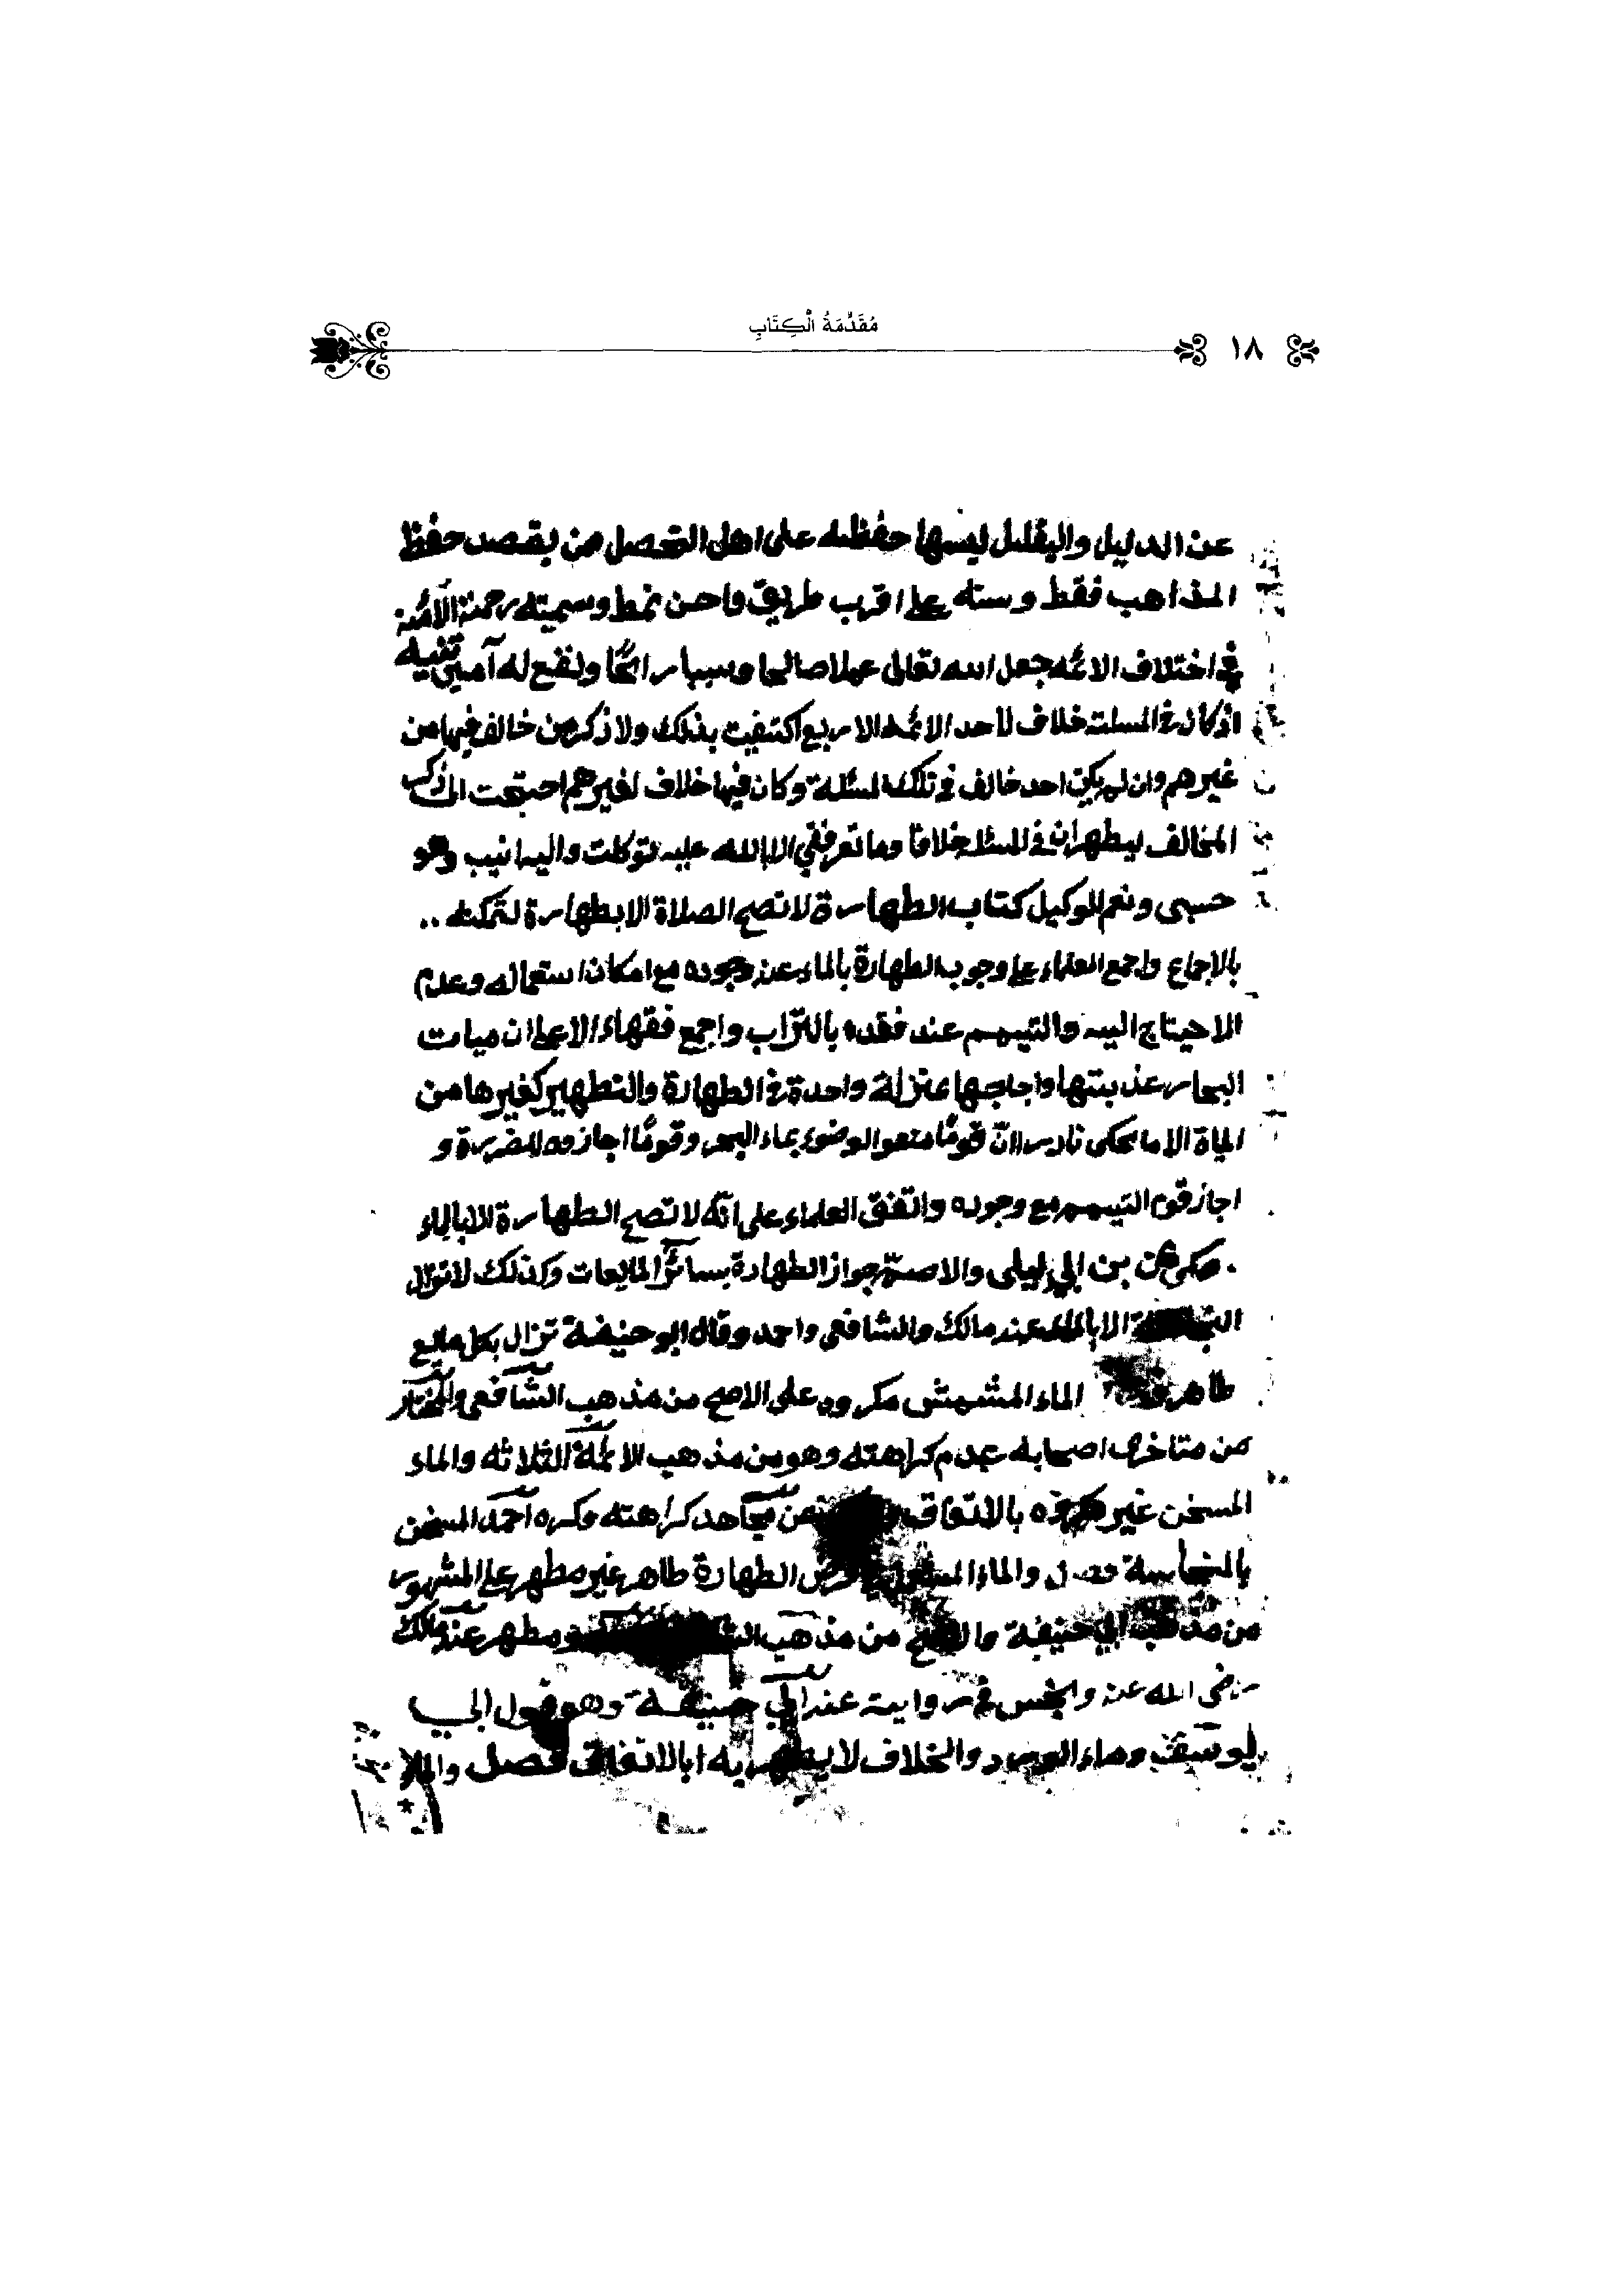 مُقَدِّمَةُ الْكِتَابِ
١٨
عن الدليل والتعليل ليسهل حفظه على اهل التحصيل ممن يقصد حفظ
المذاهب فقط ورتبته على اقرب طريق واحسن نمط وسميته رحمة الأمّة
في اختلاف الائمه جعل الله تعالى عملا صالحا وسببا رابحًا ونفع له آمين تنبيه
اذ كان في المسلة خلاف لاحد الائمه الاربع اكتفيت بذلك ولا ذكر من خالف فيها من
غيرهم وان لم يكن احد خالف في تلك المسئلة وكان فيها خلاف لغيرهم احتجت الى ذكر
المخالف ليظهر ان في المسئله خلافا وما توفيقي الا بالله عليه توكلت واليه انيب وهو
حسبى ونعم الوكيل كتاب الطهارة لا تصح الصلاة الا بطهارة لتمكنه ..
بالاجماع واجمع العلماء على وجوب الطهارة بالماء عند وجوده مع امكان استعماله وعدم
الاحتياج اليه والتيمم عند فقده بالتراب واجمع فقهاء الا على ان مياه
البحار عذبتها واجاجها بمنزلة واحدة في الطهارة والتطهير كغيرها من
المياة الا ما يحكى نادرا انّ قومًا منعوا الوضوء بماء البحر وقومًا اجازوه للضرورة و
اجاز قوم التيمم مع وجوده واتّفق العلماء على انّه لا تصح الطهارة الا بالماء
. وحكى عن بن ابي ليلى والاصمّ جواز الطهارة بسائر المايعات وكذلك لا تزال
النجاسة الا بالماء عند مالك والشافعى واحمد وقال ابو حنيفة تزال بكل مايع
طاهر الماء المشمّش مكروه على الاصح من مذهب الشافعى والمختار
من متاخرى اصحابه عدم كراهته وهو من مذهب الائمة الثلاثه والماء
المسخن غير مكروه بالاتفاق عن مجاهد كراهته وكره احمد المسخن
بالنجاسة فصل والماء المستعمل في فرض الطهارة طاهر غير مطهر على المشهور
من مذهب ابي حنيفة والاصح من مذهب ومطهر عند مالك
رضى الله عنه ونجس في رواية عند ابي حنيفة وهو قول ابي
يوسف وماء الورد والخلاف لا يطهر به بالاتفاق فصل والماء